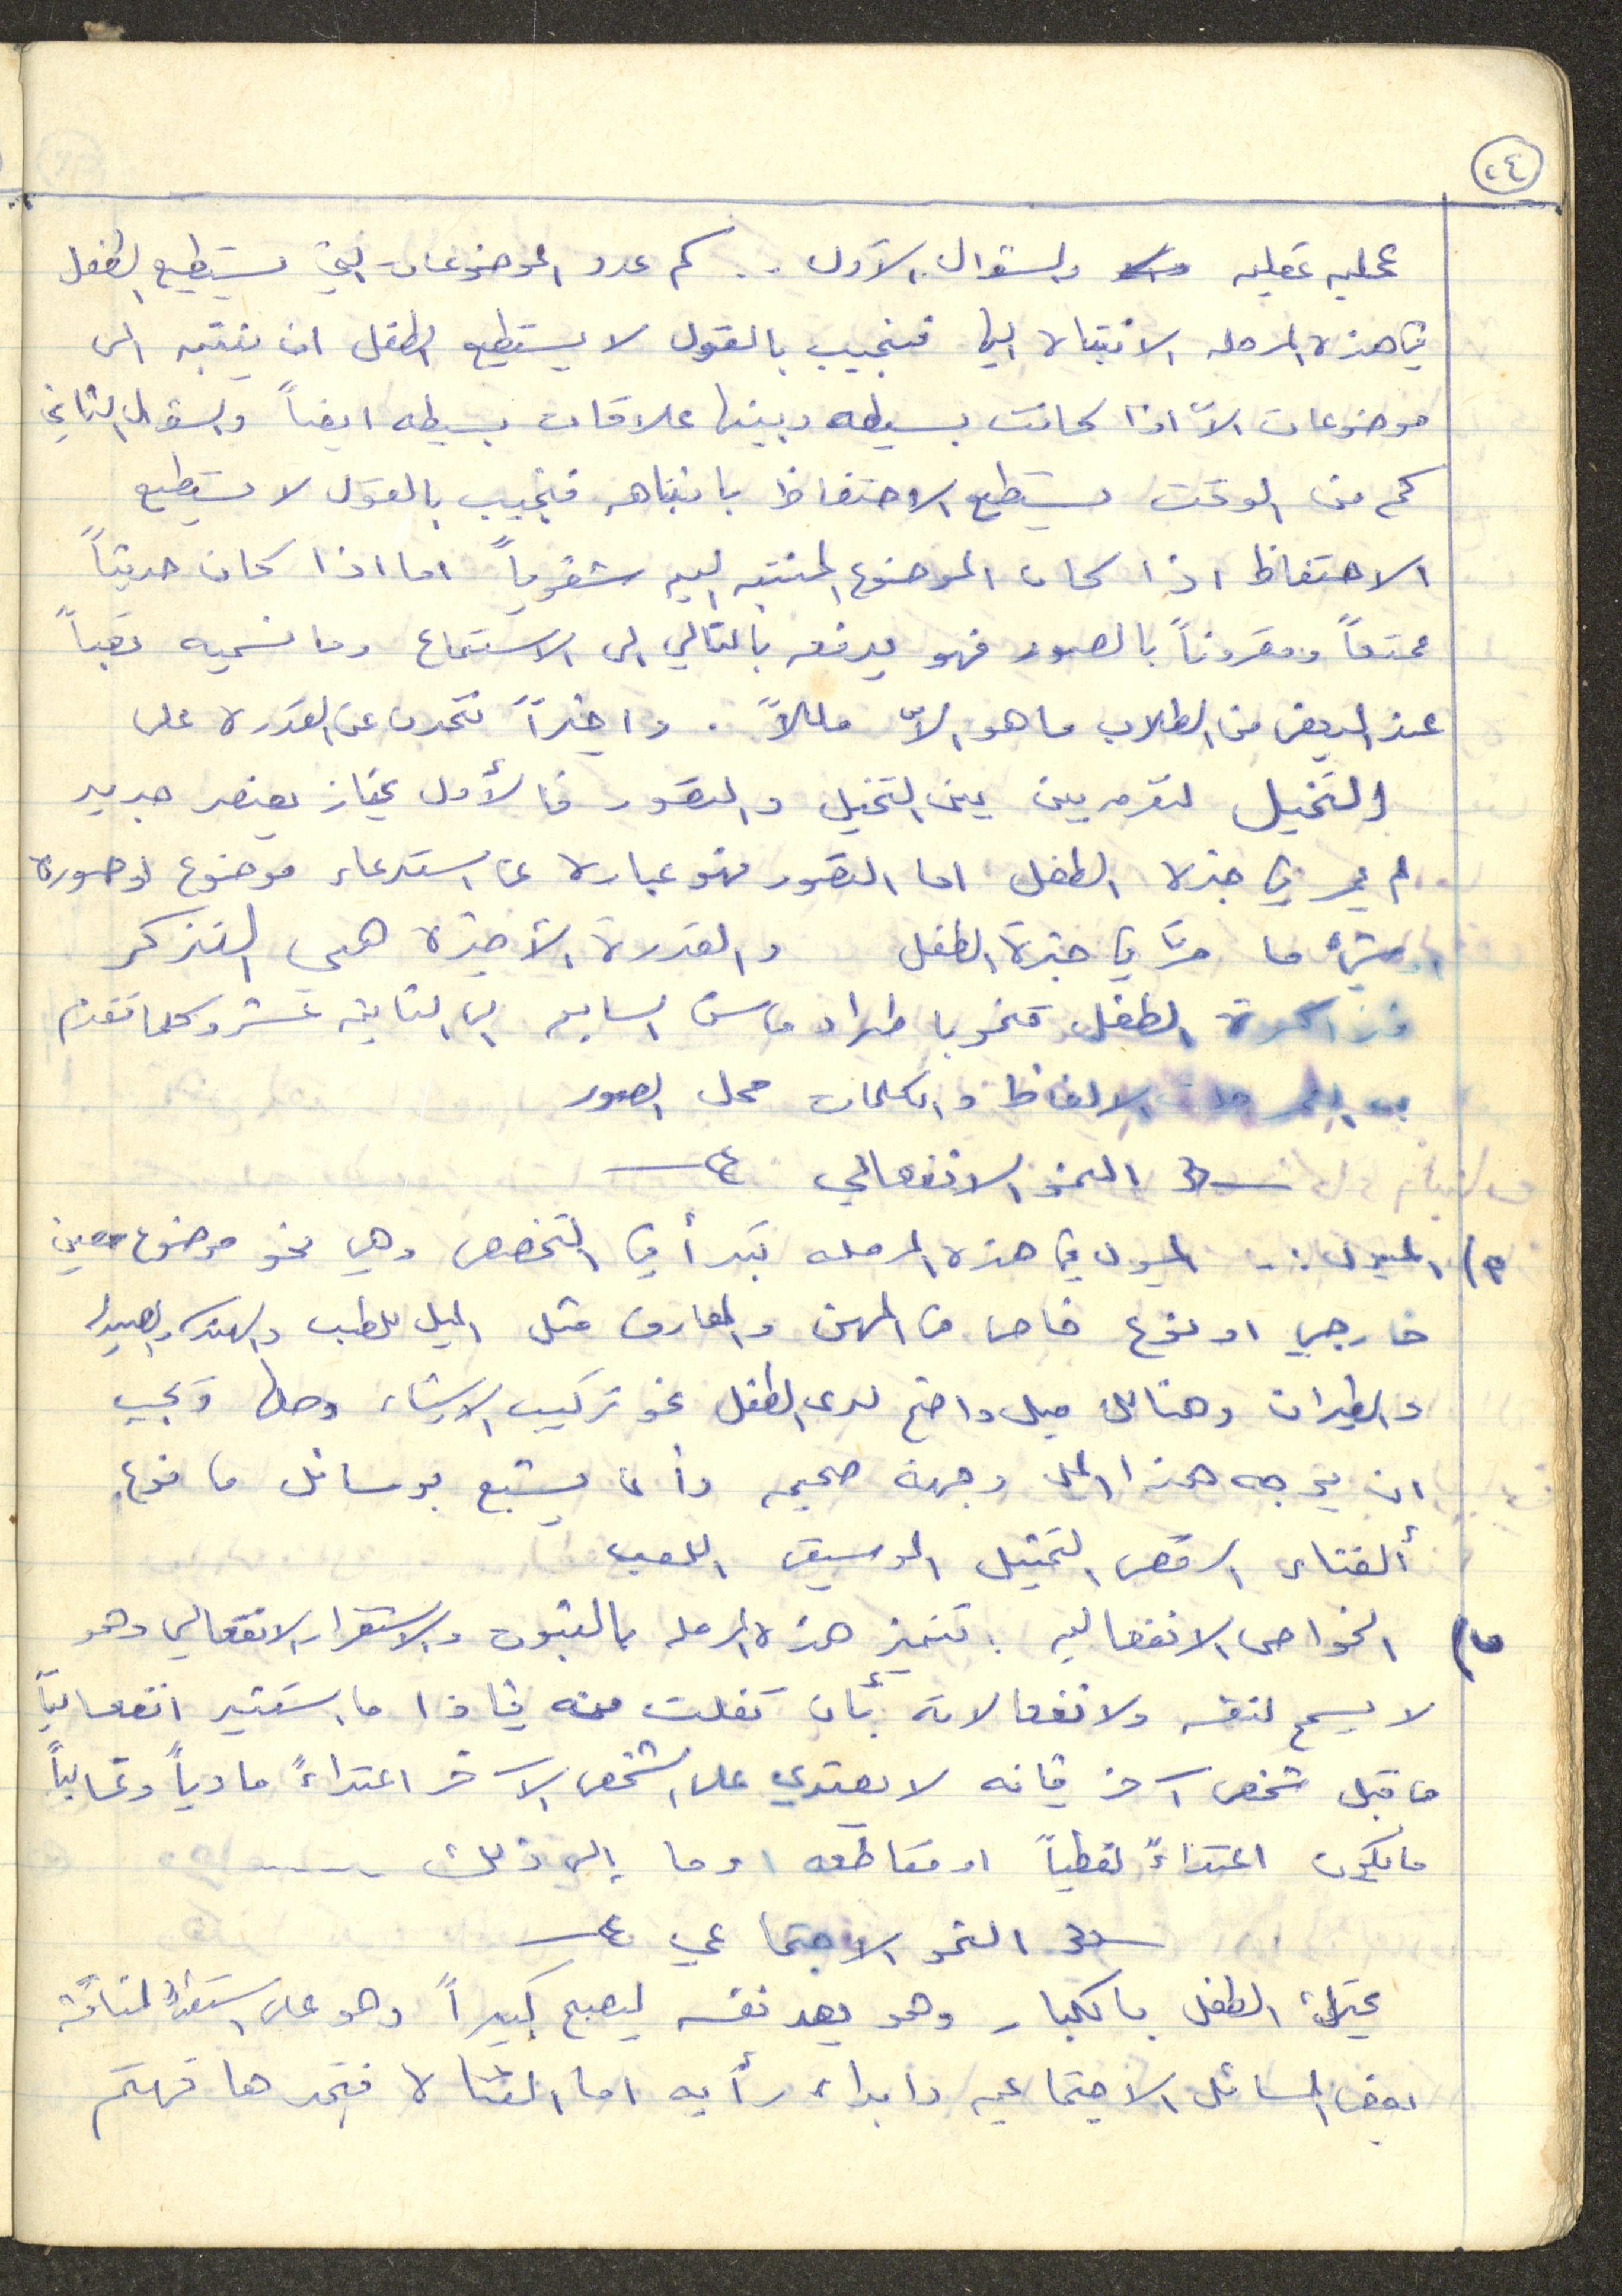 ٢٤
عمليه عقليه والسؤال الأول .. كم عدد الموضوعات التي يستطيع الطفل
في هذه المرحله الانتباه اليها فنجيب بالقول لا يستطيع الطفل ان ينتبه الى
موضوعات الاّ اذا كانت بسيطه وبينها علاقات بسيطه ايضاً والسؤال الثاني
كم من الوقت يستطيع الاحتفاظ بانتباهه فنجيب بالقول لا يستطيع
الاحتفاظ اذا كان الموضوع المنتبه اليه شفوياً اما اذا كان حديثاً
ممتعاً ومقروناً بالصور فهو يدفعه بالتالي الى الاستماع وما نسميه تعباً
عند البعض من الطلاب ما هو الاّ مللاً . واخيراً نتحدث عن القدره على
التخيل لنفرق بين التخيل والتصور فالأول يمتاز بعنصر جديد
لم يمر في خبرة الطفل اما التصور فهو عبارة عن استدعاء موضوع او صورة
او شيء ما مرّ في خبرة الطفل والقدرة الأخيرة هي التذكر
فذاكرة الطفل تنمو باطراد من السابعه الى الثانيه عشر وكلما تقدم
به العمر حلت الالفاظ والكلمات محل الصور
النمو الانفعالي
١) الميول : الميول في هذه المرحله تبدأ في التخصص وهي نحو موضوع معين
خارجي او نوع خاص من المهن والمعارف مثل الميل للطب والهندسه والصيدله
والطيران وهنالك ميل واضح لدى الطفل نحو تركيب الاشياء وحلها ويجب
ان يوجه هذا الميل وجهة صحيحه وأن يشبع بوسائل منوعه
ألغناء الرقص التمثيل الموسيقى اللعب
٢) الخواص الانفعاليه : تتميز هذه المرحله بالثبوت والاستقرار الانفعالي وهو
لا يسمح لنفسه ولانفعالاته بأن تفلت منه فاذا ما استثير انفعالياً
من قبل شخص آخر فانه لا يعتدي على الشخص الآخر اعتداءً مادياً وغالباً
ما يكون اعتداءً لفظياً او مقاطعه او ما إلى ذلك ------
النمو الاجتماعي
يحتك الطفل بالكبار وهو يعد نفسه ليصبح كبيراً وهو على استعداد لمناقشة
بعض المسائل الاجتماعيه وابداء رأيه اما الفتاة فنجدها تهتم